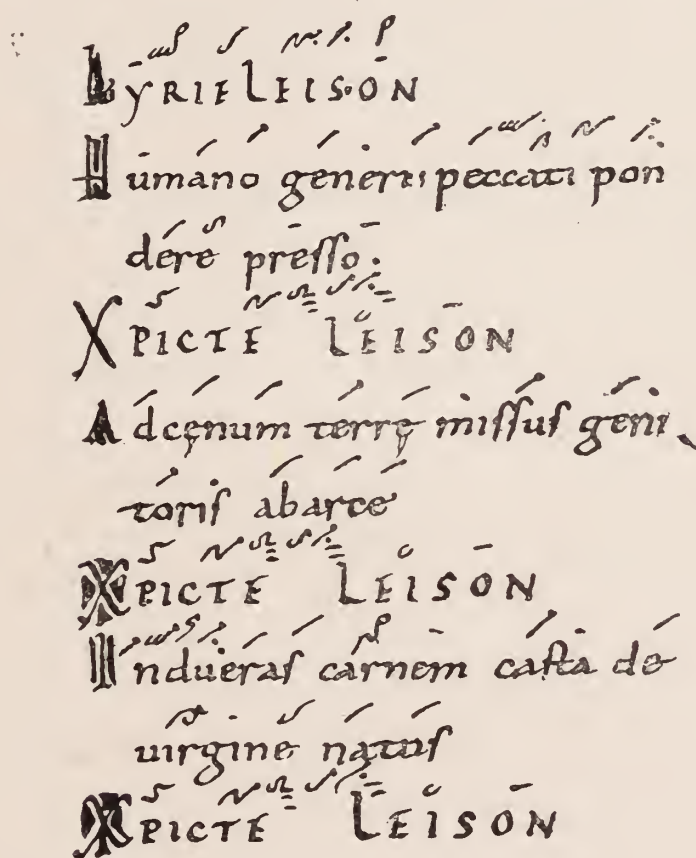 KYRIELEISON
Humano generis peccati pon
dere presso.
XPICTE LEISON
Adcęnum terrę missus geni
toris abarce
XPICTE LEISON
Indueras carnem casta de
uirgine natus
XPICTE LEISON